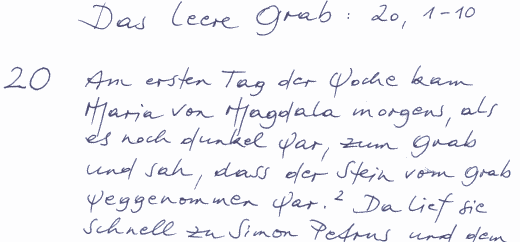 Das leere Grab: 20, 1-10
20 Am ersten Tag der Woche kam
Maria von Magdala morgens, als
es noch dunkel war, zum Grab
und sah, dass der Stein vom Grab
weggenommen war. ² Da lief sie
schnell zu Simon Petrus und dem